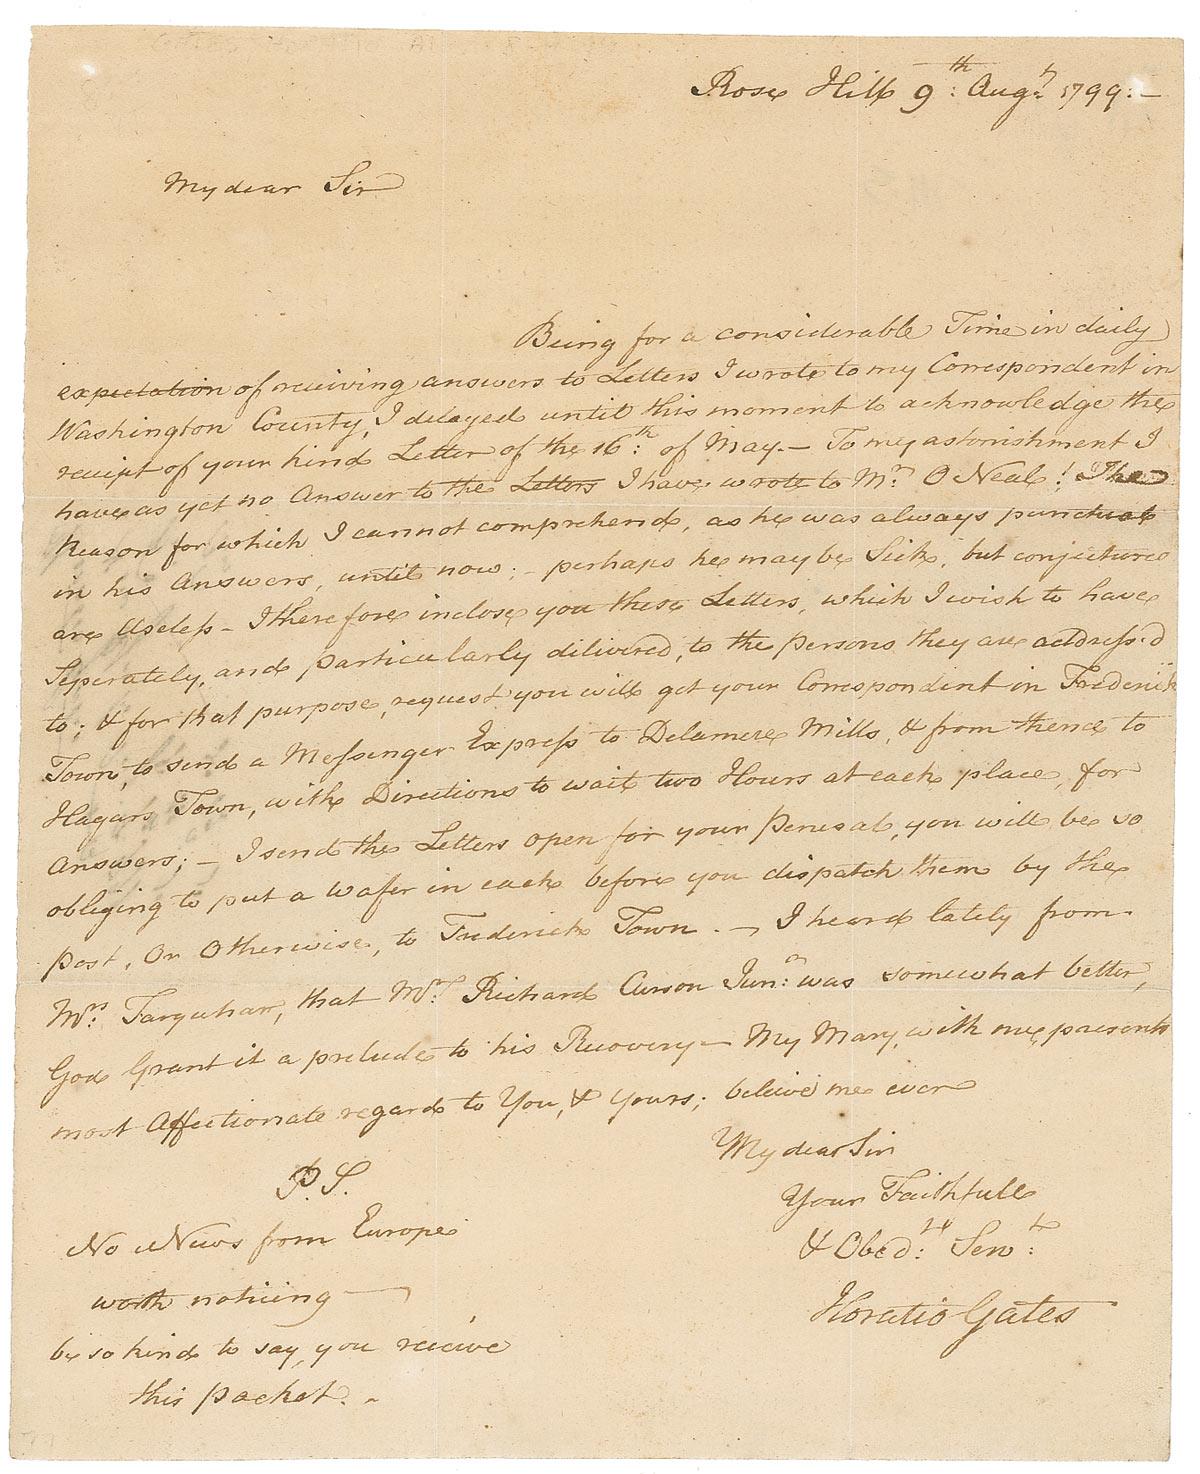 Rose Hill 9th: Augt: 1799:—
My dear Sir
Being for a considerable Time in daily
expectation of receiving answers to Letters I wrote to my Correspondent in
Washington County, I delayed until this moment to acknowledge the
receipt of your kind Letter of the 16th: of May.— To my astonishment I
have as yet no Answer to the Letters I have wrote to Mr: O Neal! The
Reason for which I cannot comprehend, as he was always punctual
in his Answers, until now; – perhaps he may be Sick, but conjectures
are Useless – I therefore inclose you these Letters, which I wish to have
Seperately, and particularly dilivered, to the Persons they are address'd
to; & for that purpose, request you will get your Correspondent in Frederick
Town, to send a Messenger Express to Delamere Mills, & from thence to
Hagars Town, with Directions to wait two Hours at each place, for
Answers; – I send the Letters open for your Perusal, you will be so
obliging to put a wafer in each before you dispatch them by the
Post, Or Otherwise, to Frederick Town. — I heard lately from
Mrs: Farquhar, that Mr: Richard Curson Junr: was somewhat better,
God Grant it a prelude to his Recovery — My Mary, with me, presents
most Affectionate regard to You, & Yours; believe me ever
My dear Sir
Your Faithfull
& Obedt: Servt:
Horatio Gates
P.S.
No News from Europe
worth noticing —
be so kind to say, you receive
this packet. –